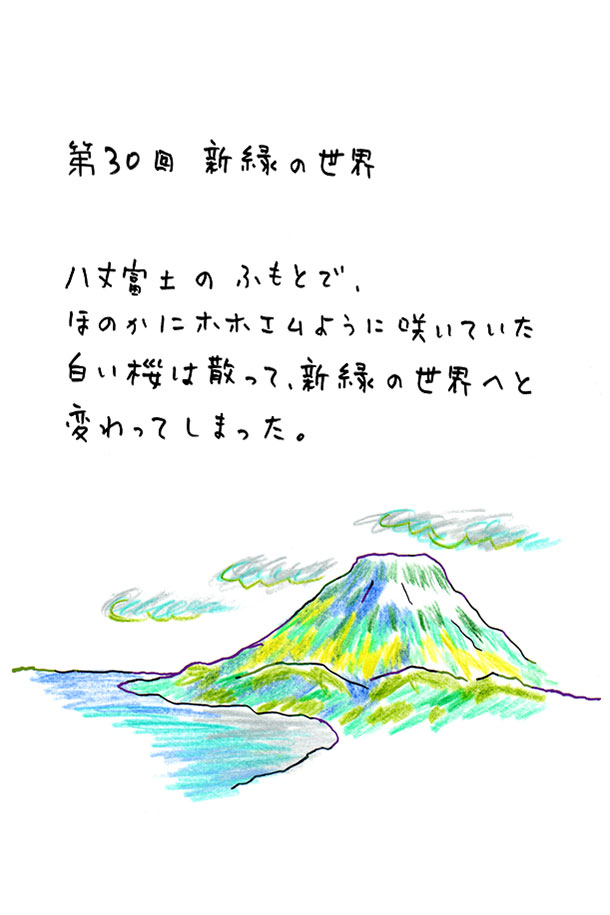 第30回 新緑の世界
八丈富士のふもとで、
ほのかにホホエムように咲いていた
白い桜は散って、新緑の世界へと
変わってしまった。